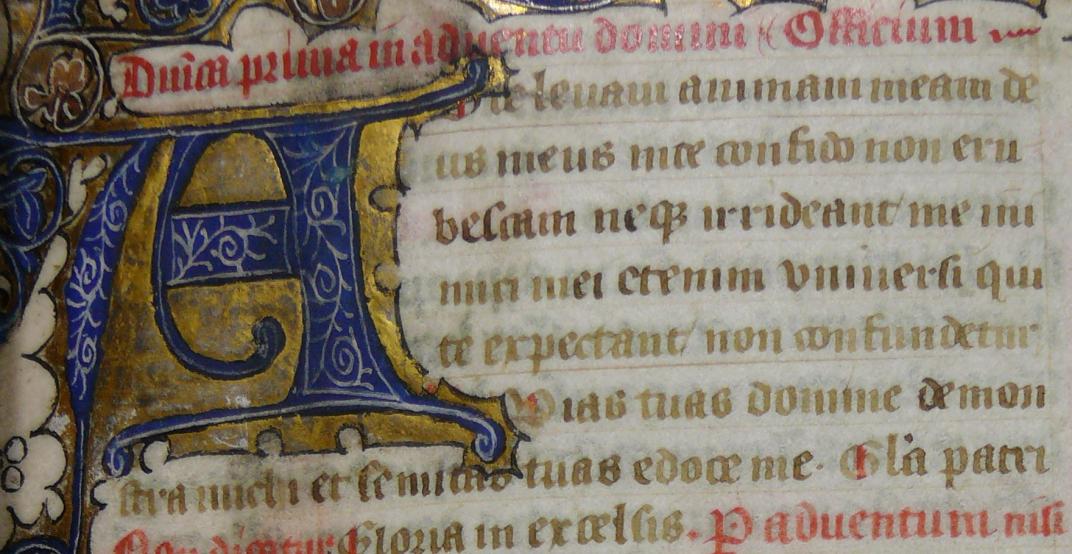 Dnica prima in adventu domini Officium
A
D te levavi animam meam de
us meus in te confido non eru
bescam neqꝫ irrideant me ini
mici mei etenim universi qui
te expectant non confundetur
Vias tuas domine demon
stra michi et semitas tuas edoce me. Gl'a patri
Non dicatur Gloria in excelsis. P adventum nisi